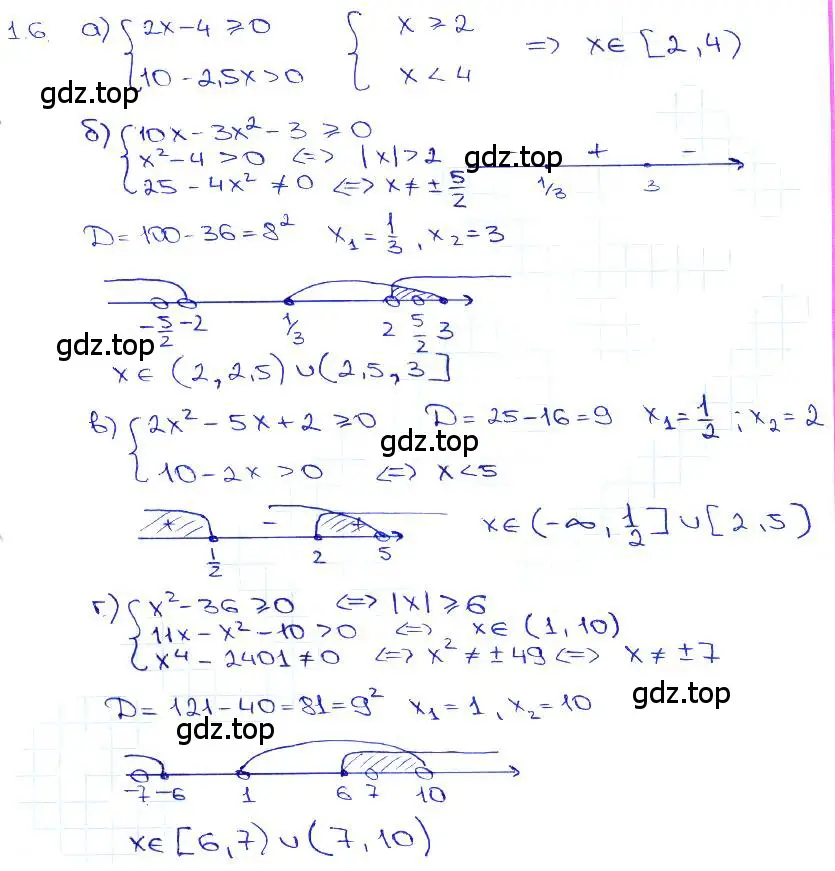 1.6. а) { 2x-4 ≥ 0 { x ≥ 2 => x∈ [2,4)
10 - 2,5x > 0 x < 4
gdz.top
б) { 10x - 3x² - 3 ≥ 0
x² - 4 > 0 <=> |x| > 2 gdz.top + -
25 - 4x² ≠ 0 <=> x ≠ ± 5/2 1/3 3
D = 100 - 36 = 8² x₁ = 1/3, x₂ = 3
-5/2 -2 1/3 2 5/2 3
gdz.top
x∈ (2, 2,5) ∪ (2,5, 3]
в) { 2x² - 5x + 2 ≥ 0 D = 25 - 16 = 9 x₁ = 1/2; x₂ = 2
gdz.top
10 - 2x > 0 <=> x < 5
+ - + x∈ (-∞, 1/2] ∪ [2,5)
1/2 2 5
г) { x² - 36 ≥ 0 <=> |x| ≥ 6
11x - x² - 10 > 0 <=> x∈ (1, 10)
x⁴ - 2401 ≠ 0 <=> x² ≠ ± 49 <=> x ≠ ± 7
gdz.top
D = 121 - 40 = 81 = 9² x₁ = 1, x₂ = 10
gdz.top
-7 -6 1 6 7 10
x∈ [6,7) ∪ (7,10)